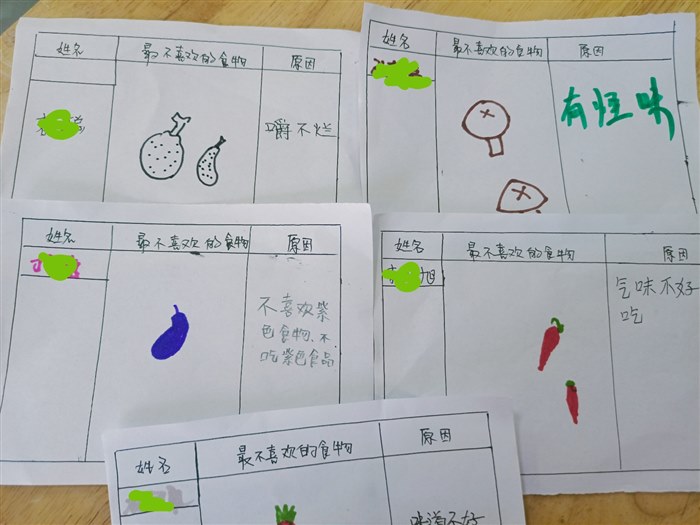 姓名 最不喜欢的食物 原因
嚼不烂
姓名 最不喜欢的食物 原因
有怪味
姓名 最不喜欢的食物 原因
不喜欢紫
色食物、不
吃紫色食品
姓名 最不喜欢的食物 原因
旭
气味不好
吃
姓名 最不喜欢的食物 原因
味道不好